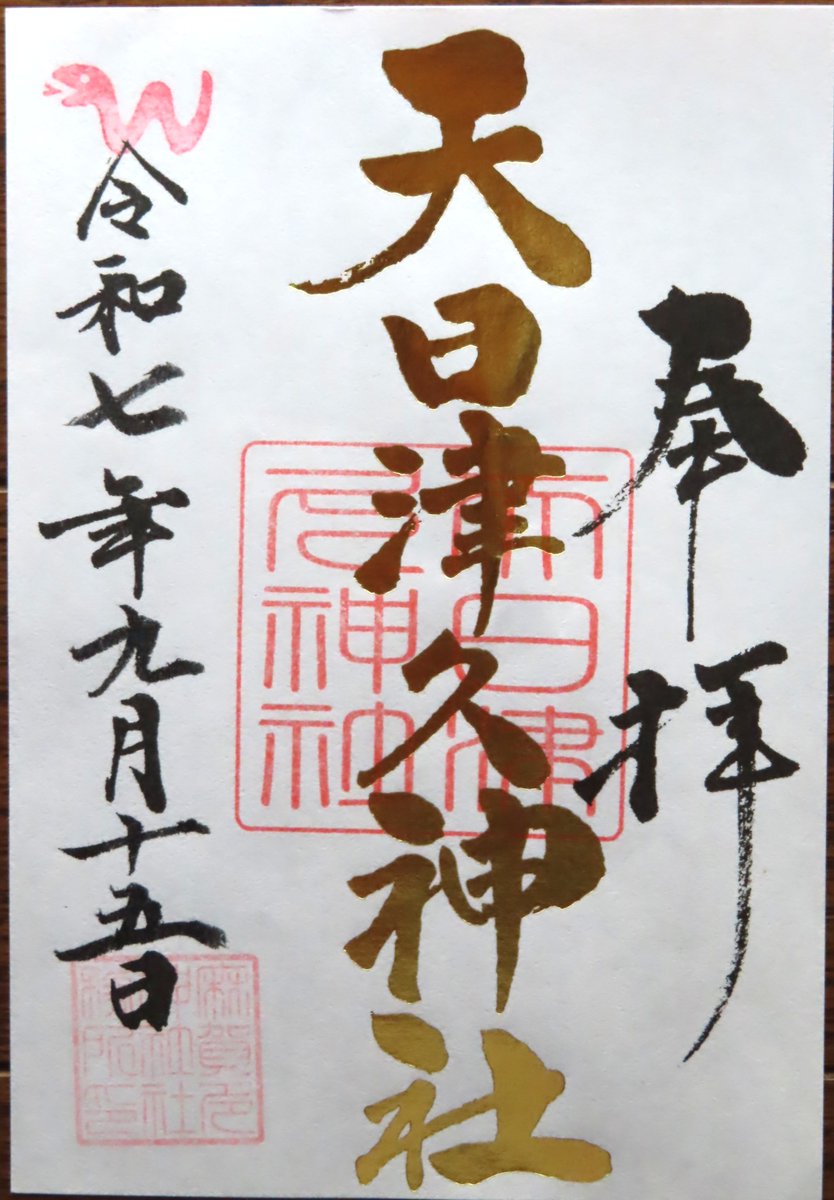 奉拝
天日津久神社
令和七年九月十五日
天日津
久神社
麻賀多
神社